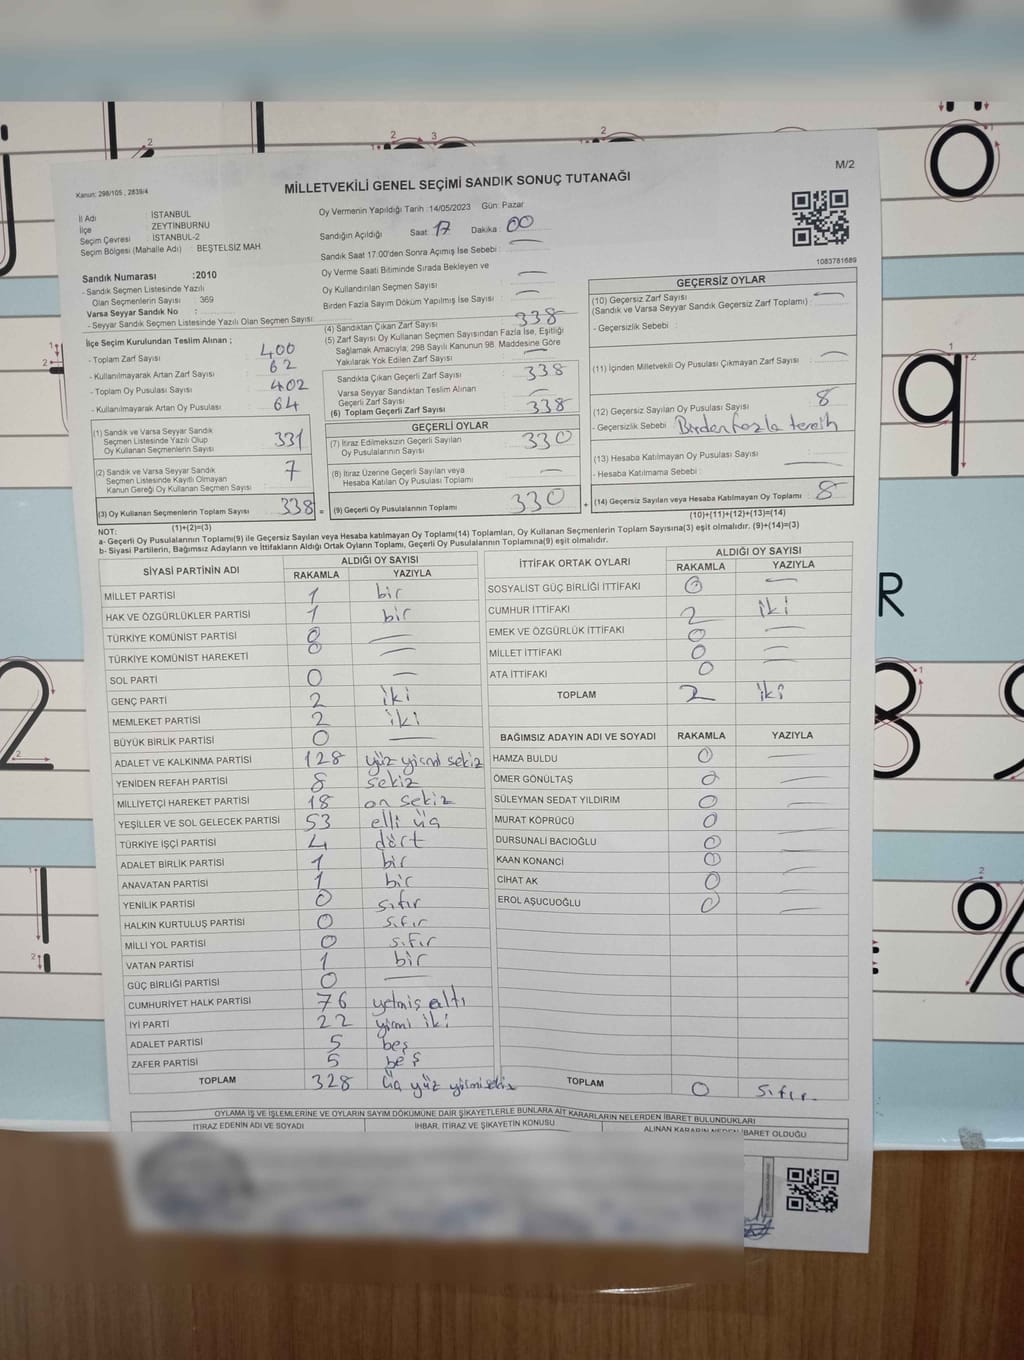 Kanun: 298/105 ; 2839/4
M/2
MİLLETVEKİLİ GENEL SEÇİMİ SANDIK SONUÇ TUTANAĞI
İl Adı : İSTANBUL
İlçe : ZEYTİNBURNU
Seçim Çevresi : İSTANBUL-2
Seçim Bölgesi (Mahalle Adı) : BEŞTELSİZ MAH.
Sandık Numarası :2010
- Sandık Seçmen Listesinde Yazılı
Olan Seçmenlerin Sayısı : 369
Varsa Seyyar Sandık No :
- Seyyar Sandık Seçmen Listesinde Yazılı Olan Seçmen Sayısı:
Oy Vermenin Yapıldığı Tarih :14/05/2023 Gün: Pazar
Sandığın Açıldığı Saat: 17 Dakika : 00
Sandık Saat 17:00'den Sonra Açımış İse Sebebi : —
Oy Verme Saati Bitiminde Sırada Bekleyen ve
Oy Kullandırılan Seçmen Sayısı : —
Birden Fazla Sayım Döküm Yapılmış İse Sayısı : —
1083781689
İlçe Seçim Kurulundan Teslim Alınan ;
- Toplam Zarf Sayısı : 400
- Kullanılmayarak Artan Zarf Sayısı : 62
- Toplam Oy Pusulası Sayısı : 402
- Kullanılmayarak Artan Oy Pusulası : 64
(1) Sandık ve Varsa Seyyar Sandık
Seçmen Listesinde Yazılı Olup
Oy Kullanan Seçmenlerin Sayısı : 331
(2) Sandık ve Varsa Seyyar Sandık
Seçmen Listesinde Kayıtlı Olmayan
Kanun Gereği Oy Kullanan Seçmen Sayısı : 7
(3) Oy Kullanan Seçmenlerin Toplam Sayısı : 338 =
(1)+(2)=(3)
(4) Sandıktan Çıkan Zarf Sayısı : 338
(5) Zarf Sayısı Oy Kullanan Seçmen Sayısından Fazla İse, Eşitliği
Sağlamak Amacıyla; 298 Sayılı Kanunun 98. Maddesine Göre
Yakılarak Yok Edilen Zarf Sayısı : —
Sandıkta Çıkan Geçerli Zarf Sayısı : 338
Varsa Seyyar Sandıktan Teslim Alınan
Geçerli Zarf Sayısı : —
(6) Toplam Geçerli Zarf Sayısı : 338
GEÇERLİ OYLAR
(7) İtiraz Edilmeksizin Geçerli Sayılan
Oy Pusulalarının Sayısı : 330
(8) İtiraz Üzerine Geçerli Sayılan veya
Hesaba Katılan Oy Pusulası Toplamı : —
(9) Geçerli Oy Pusulalarının Toplamı : 330 +
GEÇERSİZ OYLAR
(10) Geçersiz Zarf Sayısı
(Sandık ve Varsa Seyyar Sandık Geçersiz Zarf Toplamı) : —
- Geçersizlik Sebebi :
(11) İçinden Milletvekili Oy Pusulası Çıkmayan Zarf Sayısı : —
(12) Geçersiz Sayılan Oy Pusulası Sayısı : 8
- Geçersizlik Sebebi : Birden fazla tercih
(13) Hesaba Katılmayan Oy Pusulası Sayısı :
- Hesaba Katılmama Sebebi : —
(14) Geçersiz Sayılan veya Hesaba Katılmayan Oy Toplamı : 8
(10)+(11)+(12)+(13)=(14)
NOT:
a- Geçerli Oy Pusulalarının Toplamı(9) ile Geçersiz Sayılan veya Hesaba katılmayan Oy Toplamı(14) Toplamları, Oy Kullanan Seçmenlerin Toplam Sayısına(3) eşit olmalıdır. (9)+(14)=(3)
b- Siyasi Partilerin, Bağımsız Adayların ve İttifakların Aldığı Ortak Oyların Toplamı, Geçerli Oy Pusulalarının Toplamına(9) eşit olmalıdır.
SİYASİ PARTİNİN ADI ALDIĞI OY SAYISI
RAKAMLA YAZIYLA
MİLLET PARTİSİ 1 bir
HAK VE ÖZGÜRLÜKLER PARTİSİ 1 bir
TÜRKİYE KOMÜNİST PARTİSİ 0 —
TÜRKİYE KOMÜNİST HAREKETİ 0 —
SOL PARTİ 0 —
GENÇ PARTİ 2 iki
MEMLEKET PARTİSİ 2 iki
BÜYÜK BİRLİK PARTİSİ 0 —
ADALET VE KALKINMA PARTİSİ 128 yüz yirmi sekiz
YENİDEN REFAH PARTİSİ 8 sekiz
MİLLİYETÇİ HAREKET PARTİSİ 18 on sekiz
YEŞİLLER VE SOL GELECEK PARTİSİ 53 elli üç
TÜRKİYE İŞÇİ PARTİSİ 4 dört
ADALET BİRLİK PARTİSİ 1 bir
ANAVATAN PARTİSİ 1 bir
YENİLİK PARTİSİ 0 sıfır
HALKIN KURTULUŞ PARTİSİ 0 sıfır
MİLLİ YOL PARTİSİ 0 sıfır
VATAN PARTİSİ 1 bir
GÜÇ BİRLİĞİ PARTİSİ 0 —
CUMHURİYET HALK PARTİSİ 76 yetmiş altı
İYİ PARTİ 22 yirmi iki
ADALET PARTİSİ 5 beş
ZAFER PARTİSİ 5 beş
TOPLAM 328 üç yüz yirmi sekiz
İTTİFAK ORTAK OYLARI ALDIĞI OY SAYISI
RAKAMLA YAZIYLA
SOSYALİST GÜÇ BİRLİĞİ İTTİFAKI 0 —
CUMHUR İTTİFAKI 2 iki
EMEK VE ÖZGÜRLÜK İTTİFAKI 0 —
MİLLET İTTİFAKI 0 —
ATA İTTİFAKI 0
TOPLAM 2 iki
BAĞIMSIZ ADAYIN ADI VE SOYADI RAKAMLA YAZIYLA
HAMZA BULDU 0 —
ÖMER GÖNÜLTAŞ 0 —
SÜLEYMAN SEDAT YILDIRIM 0 —
MURAT KÖPRÜCÜ 0 —
DURSUNALİ BACIOĞLU 0 —
KAAN KONANCİ 0 —
CİHAT AK 0 —
EROL AŞUCUOĞLU 0 —
TOPLAM 0 sıfır
OYLAMA İŞ VE İŞLEMLERİNE VE OYLARIN SAYIM DÖKÜMÜNE DAİR ŞİKAYETLERLE BUNLARA AİT KARARLARIN NELERDEN İBARET BULUNDUKLARI
İTİRAZ EDENİN ADI VE SOYADI İHBAR, İTİRAZ VE ŞİKAYETİN KONUSU ALINAN KARARIN NEDEN İBARET OLDUĞU